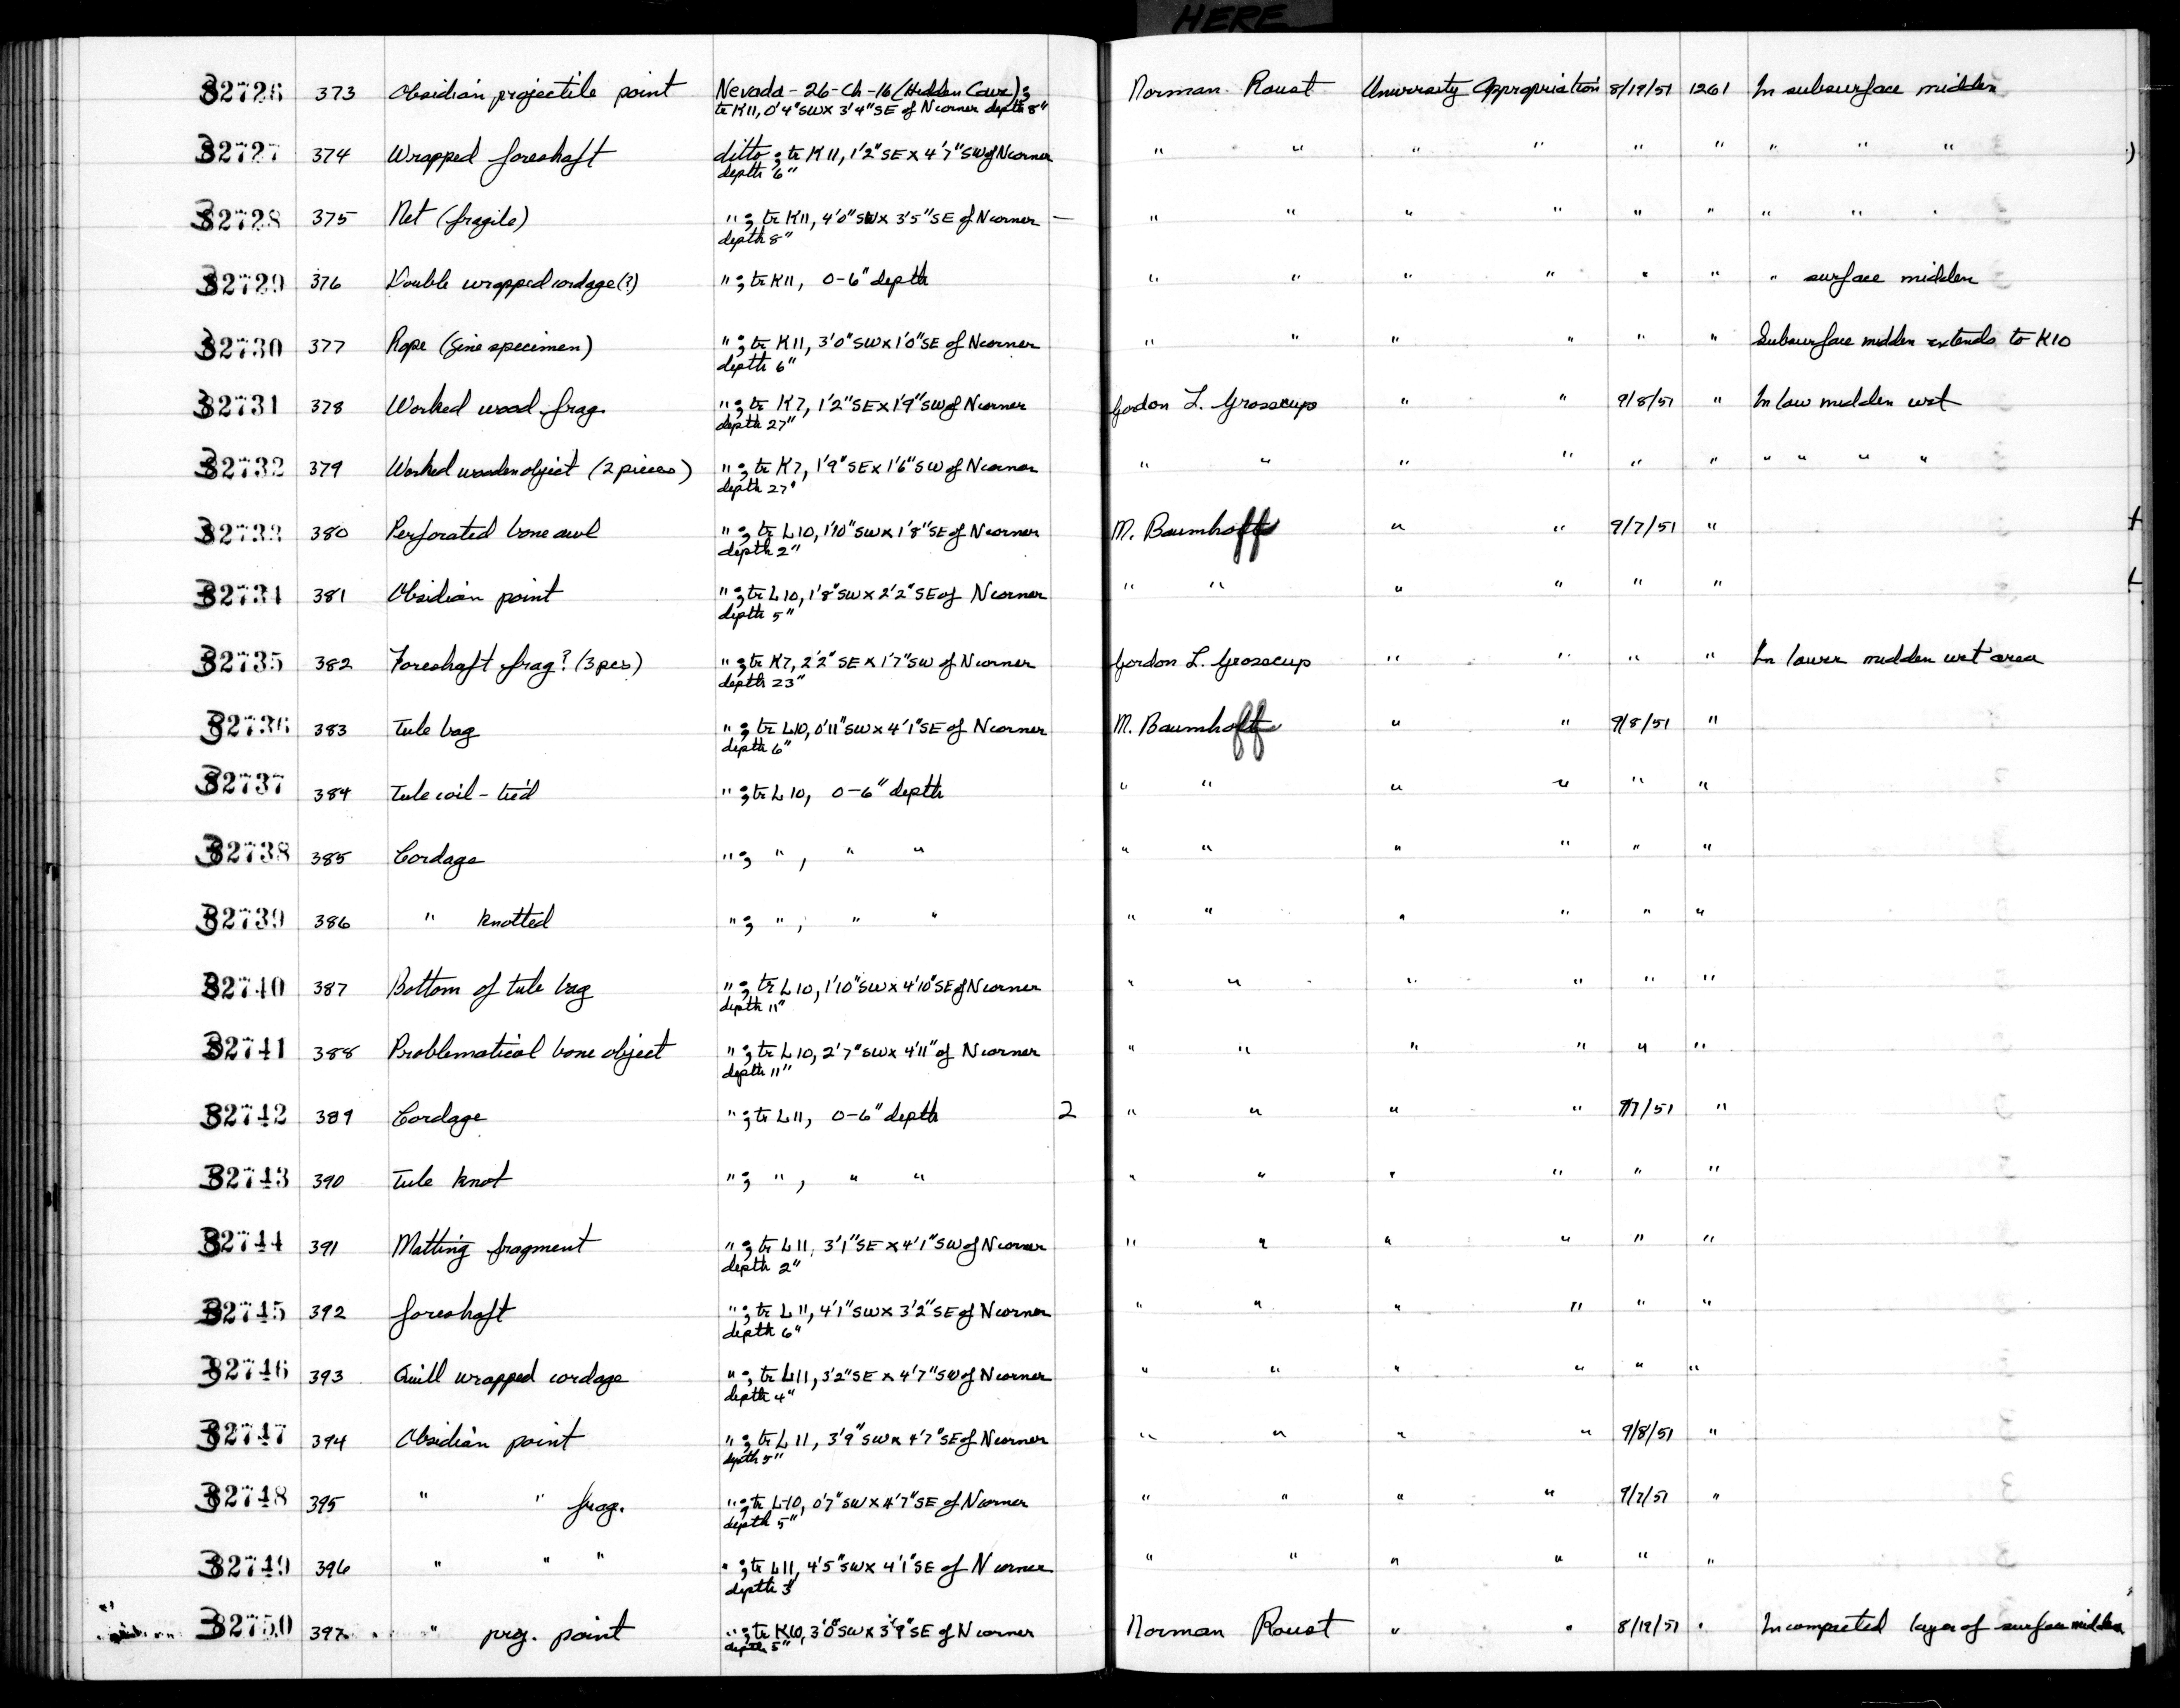 HERE
32726 373 Obsidian projectile point Nevada - 26-Ch-16 (Hidden Cave); Norman Roust University Appropriation 8/19/51 1261 In subsurface midden
tr K11, 0'4" SW x 3'4" SE of N corner depth 8"
32727 374 Wrapped foreshaft ditto ; tr K11, 1'2" SE x 4'7" SW of N corner " " " " " " " " "
depth 6"
32728 375 Net (fragile) " ; tr K11, 4'0" SW x 3'5" SE of N corner — " " " " " " " " "
depth 8"
32729 376 Double wrapped cordage (?) " ; tr K11, 0-6" depth " " " " " " " surface midden
32730 377 Rope (fine specimen) " ; tr K11, 3'0" SW x 1'0" SE of N corner " " " " " " Subsurface midden extends to K10
depth 6"
32731 378 Worked wood frag. " ; tr K7, 1'2" SE x 1'9" SW of N corner Gordon L. Grosscup " " 9/8/51 " In low midden wet
depth 27"
32732 379 Worked wooden object (2 pieces) " ; tr K7, 1'9" SE x 1'6" SW of N corner " " " " " " " " " "
depth 27"
32733 380 Perforated bone awl " ; tr L10, 1'10" SW x 1'8" SE of N corner M. Baumhoff " " 9/7/51 "
depth 2"
32734 381 Obsidian point " ; tr L10, 1'8" SW x 2'2" SE of N corner " " " " " "
depth 5"
32735 382 Foreshaft frag? (3 pcs) " ; tr K7, 2'2" SE x 1'7" SW of N corner Gordon L. Grosscup " " " " In lower midden wet area
depth 23"
32736 383 Tule bag " ; tr L10, 0'11" SW x 4'1" SE of N corner M. Baumhoff " " 9/8/51 "
depth 6"
32737 384 Tule coil - tied " ; tr L10, 0-6" depth " " " " " "
32738 385 Cordage " ; " , " " " " " " " "
32739 386 " knotted " ; " , " " " " " " " "
32740 387 Bottom of tule bag " ; tr L10, 1'10" SW x 4'10" SE of N corner " " " " " "
depth 11"
32741 388 Problematical bone object " ; tr L10, 2'7" SW x 4'11" of N corner " " " " " "
depth 11"
32742 389 Cordage " ; tr L11, 0-6" depth 2 " " " " 9/7/51 "
32743 390 Tule knot " ; " , " " " " " " " "
32744 391 Matting fragment " ; tr L11, 3'1" SE x 4'1" SW of N corner " " " " " "
depth 2"
32745 392 foreshaft " ; tr L11, 4'1" SW x 3'2" SE of N corner " " " " " "
depth 6"
32746 393 Quill wrapped cordage " ; tr L11, 3'2" SE x 4'7" SW of N corner " " " " " "
depth 4"
32747 394 Obsidian point " ; tr L11, 3'9" SW x 4'7" SE of N corner " " " " 9/8/51 "
depth 5"
32748 395 " " frag. " ; tr L10, 0'7" SW x 4'7" SE of N corner " " " " 9/7/51 "
depth 5"
32749 396 " " " " ; tr L11, 4'5" SW x 4'1" SE of N corner " " " " " "
depth 3"
32750 397 " proj. point " ; tr K10, 3'0" SW x 3'9" SE of N corner Norman Roust " " 8/19/51 " In compacted layer of surface midden
depth 5"